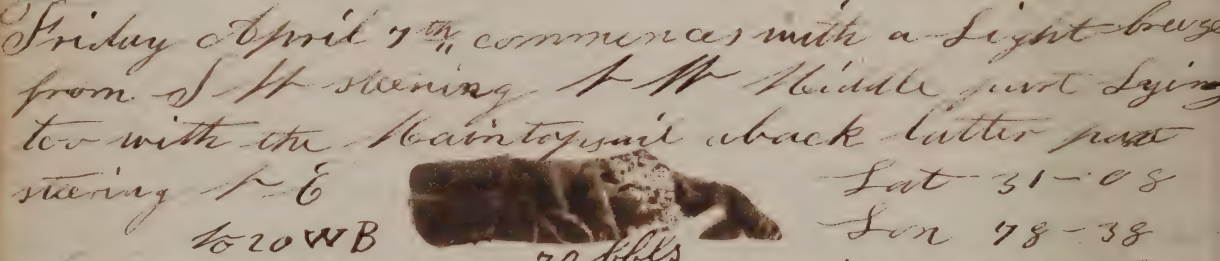 Friday April 7th commences with a Light breeze
from S W steering N W Middle part Lying
too with the Maintopsail aback latter part
steering N E
Lat 31-08
to 20 WB
Lon 78-38
70 bbls